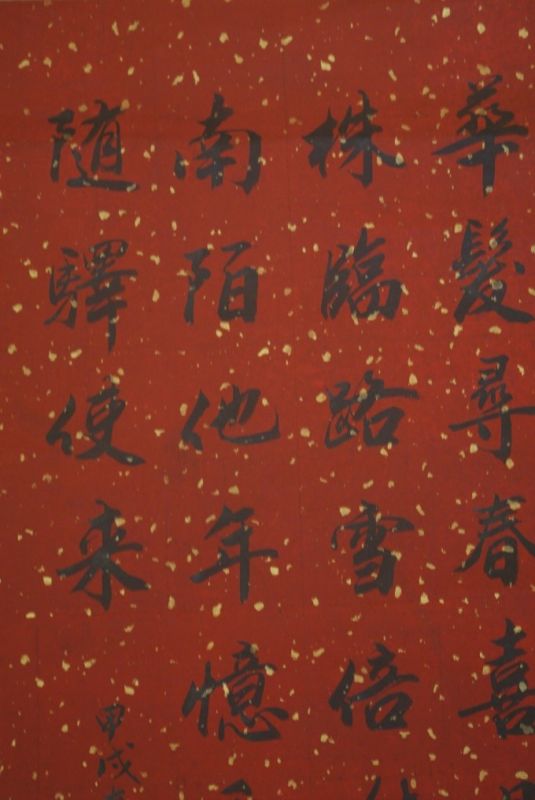 華髮尋春喜
株臨路雪倍
南陌他年憶
随驛使来
甲戌